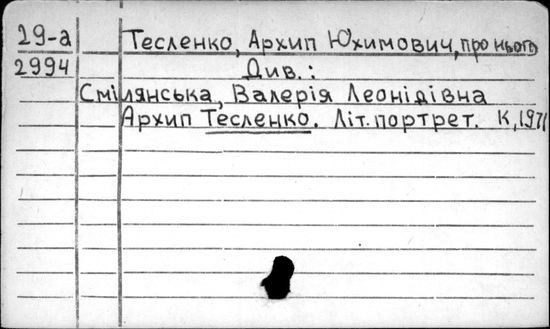 29-а Тесленко, Архип Юхимович, про нього
2994 Див.:
Смілянська, Валерія Леонідівна
Архип Тесленко. Літ. портрет. К, 1971